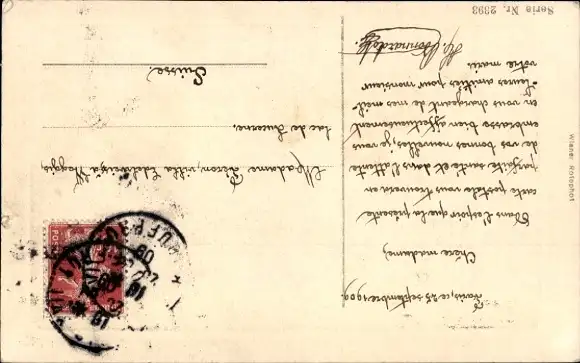 Paris, ce 25 septembre 1909
Chère madame,
Dans l'espoir que la présente
carte postale vous trouvera en
parfaite santé et dans l'attente
de vos bonnes nouvelles, je vous
embrasse bien affectueusement
en vous chargeant de mes meil-
leures amitiés pour monsieur
votre mari.
Madame Féron, villa Edelweiss à Weggis,
lac de Lucerne,
Suisse.
Serie Nr. 2393
Wiener Rotophot